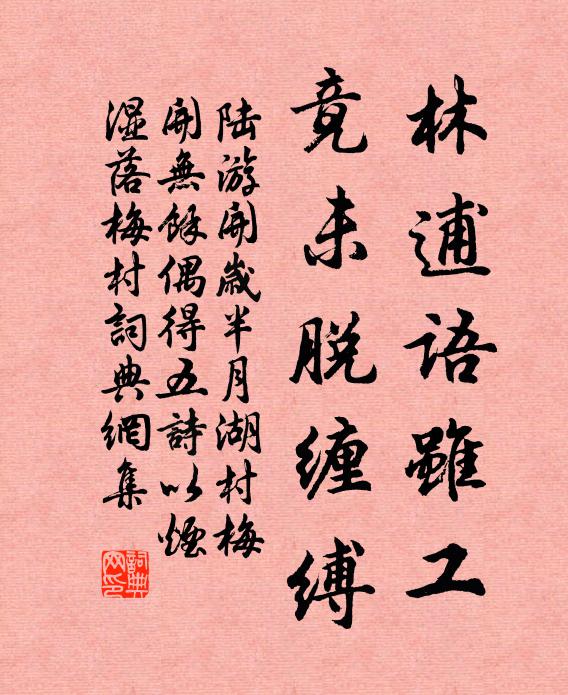 林逋語雖工
竟未脱纏縛
陆游開歲半月湖村梅
開無餘偶得五詩以煙
濕落梅村詞典網集
詞典网印